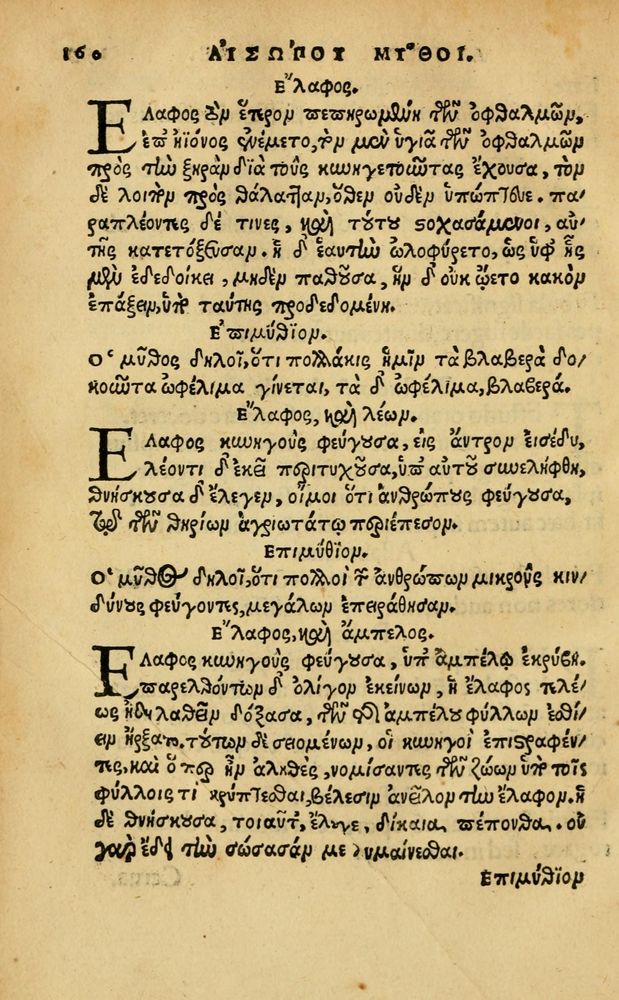 160 ΑΙΣΩΠΟΥ ΜΥΘΟΙ.
Ε῎λαφος.
ΕΛαφος τὸν ἕτερον πεπηρωμένη τῶν ὀφθαλμῶν,
ἐπ' ἠϊόνος ἐνέμετο, τὸν μὲν ὑγιᾶ τῶν ὀφθαλμῶν
πρὸς τὴν ξηρὰν διὰ τοὺς κυνηγετοῦντας ἔχουσα, τὸν
δὲ λοιπὸν πρὸς θάλατταν, ὅθεν οὐδὲν ὑπώπτευε. πα/
ραπλέοντες δέ τινες, καὶ τοῦτο στοχασάμενοι, αὐ/
τῆς κατετόξευσαν. ἡ δ' ἑαυτὴν ὠλοφύρετο, ὡς ὑφ' ἧς
μὲν ἐδεδοίκει, μηδὲν παθοῦσα, ἣν δ' οὐκ ᾤετο κακὸν
ἐπάξειν, ὑπὸ ταύτης προδεδομένη.
Ε᾿πιμύθϊον.
Ο῾ μῦθος δηλοῖ, ὅτι πολλάκις ἡμῖν τὰ βλαβερὰ δο/
κοῦντα ὠφέλιμα γίνεται, τὰ δ' ὠφέλιμα, βλαβερά.
Ε῎λαφος, καὶ λέων.
ΕΛαφος κυνηγοὺς φεύγουσα, εἰς ἄντρον εἰσέδυ,
λέοντι δ' ἐκεῖ περιτυχοῦσα, ὑπ' αὐτοῦ συνελήφθη,
θνήσκουσα δ' ἔλεγεν, οἴμοι ὅτι ἀνθρώπους φεύγουσα,
τῷ τῶν θηρίων ἀγριωτάτῳ περιέπεσον.
Επιμύθϊον.
Ο῾ μῦθος δηλοῖ, ὅτι πολλοὶ τῶν ἀνθρώπων μικροὺς κιν/
δύνους φεύγοντες, μεγάλων ἐπειράθησαν.
Ε῎λαφος, καὶ ἄμπελος.
ΕΛαφος κυνηγοὺς φεύγουσα, ὑπ' ἀμπέλῳ ἐκρύβη.
παρελθόντων δ' ὀλίγον ἐκείνων, ἡ ἔλαφος τελέ/
ως ἤδη λαθεῖν δόξασα, τῶν τῆς ἀμπέλου φύλλων ἐσθί/
ειν ἤρξατο. τούτων δὲ σειομένων, οἱ κυνηγοὶ ἐπιστραφέν/
τες, καὶ ὅπερ ἦν ἀληθὲς, νομίσαντες τῶν ζώων ὑπὸ τοῖς
φύλλοις τὶ κρύπτεσθαι, βέλεσιν ἀνεῖλον τὴν ἔλαφον. ἡ
δὲ θνήσκουσα, τοιαῦτ' ἔλεγε, δίκαια πέπονθα. οὐ
γὰρ ἔδει τὴν σώσασάν με λυμαίνεσθαι.
Επιμύθϊον